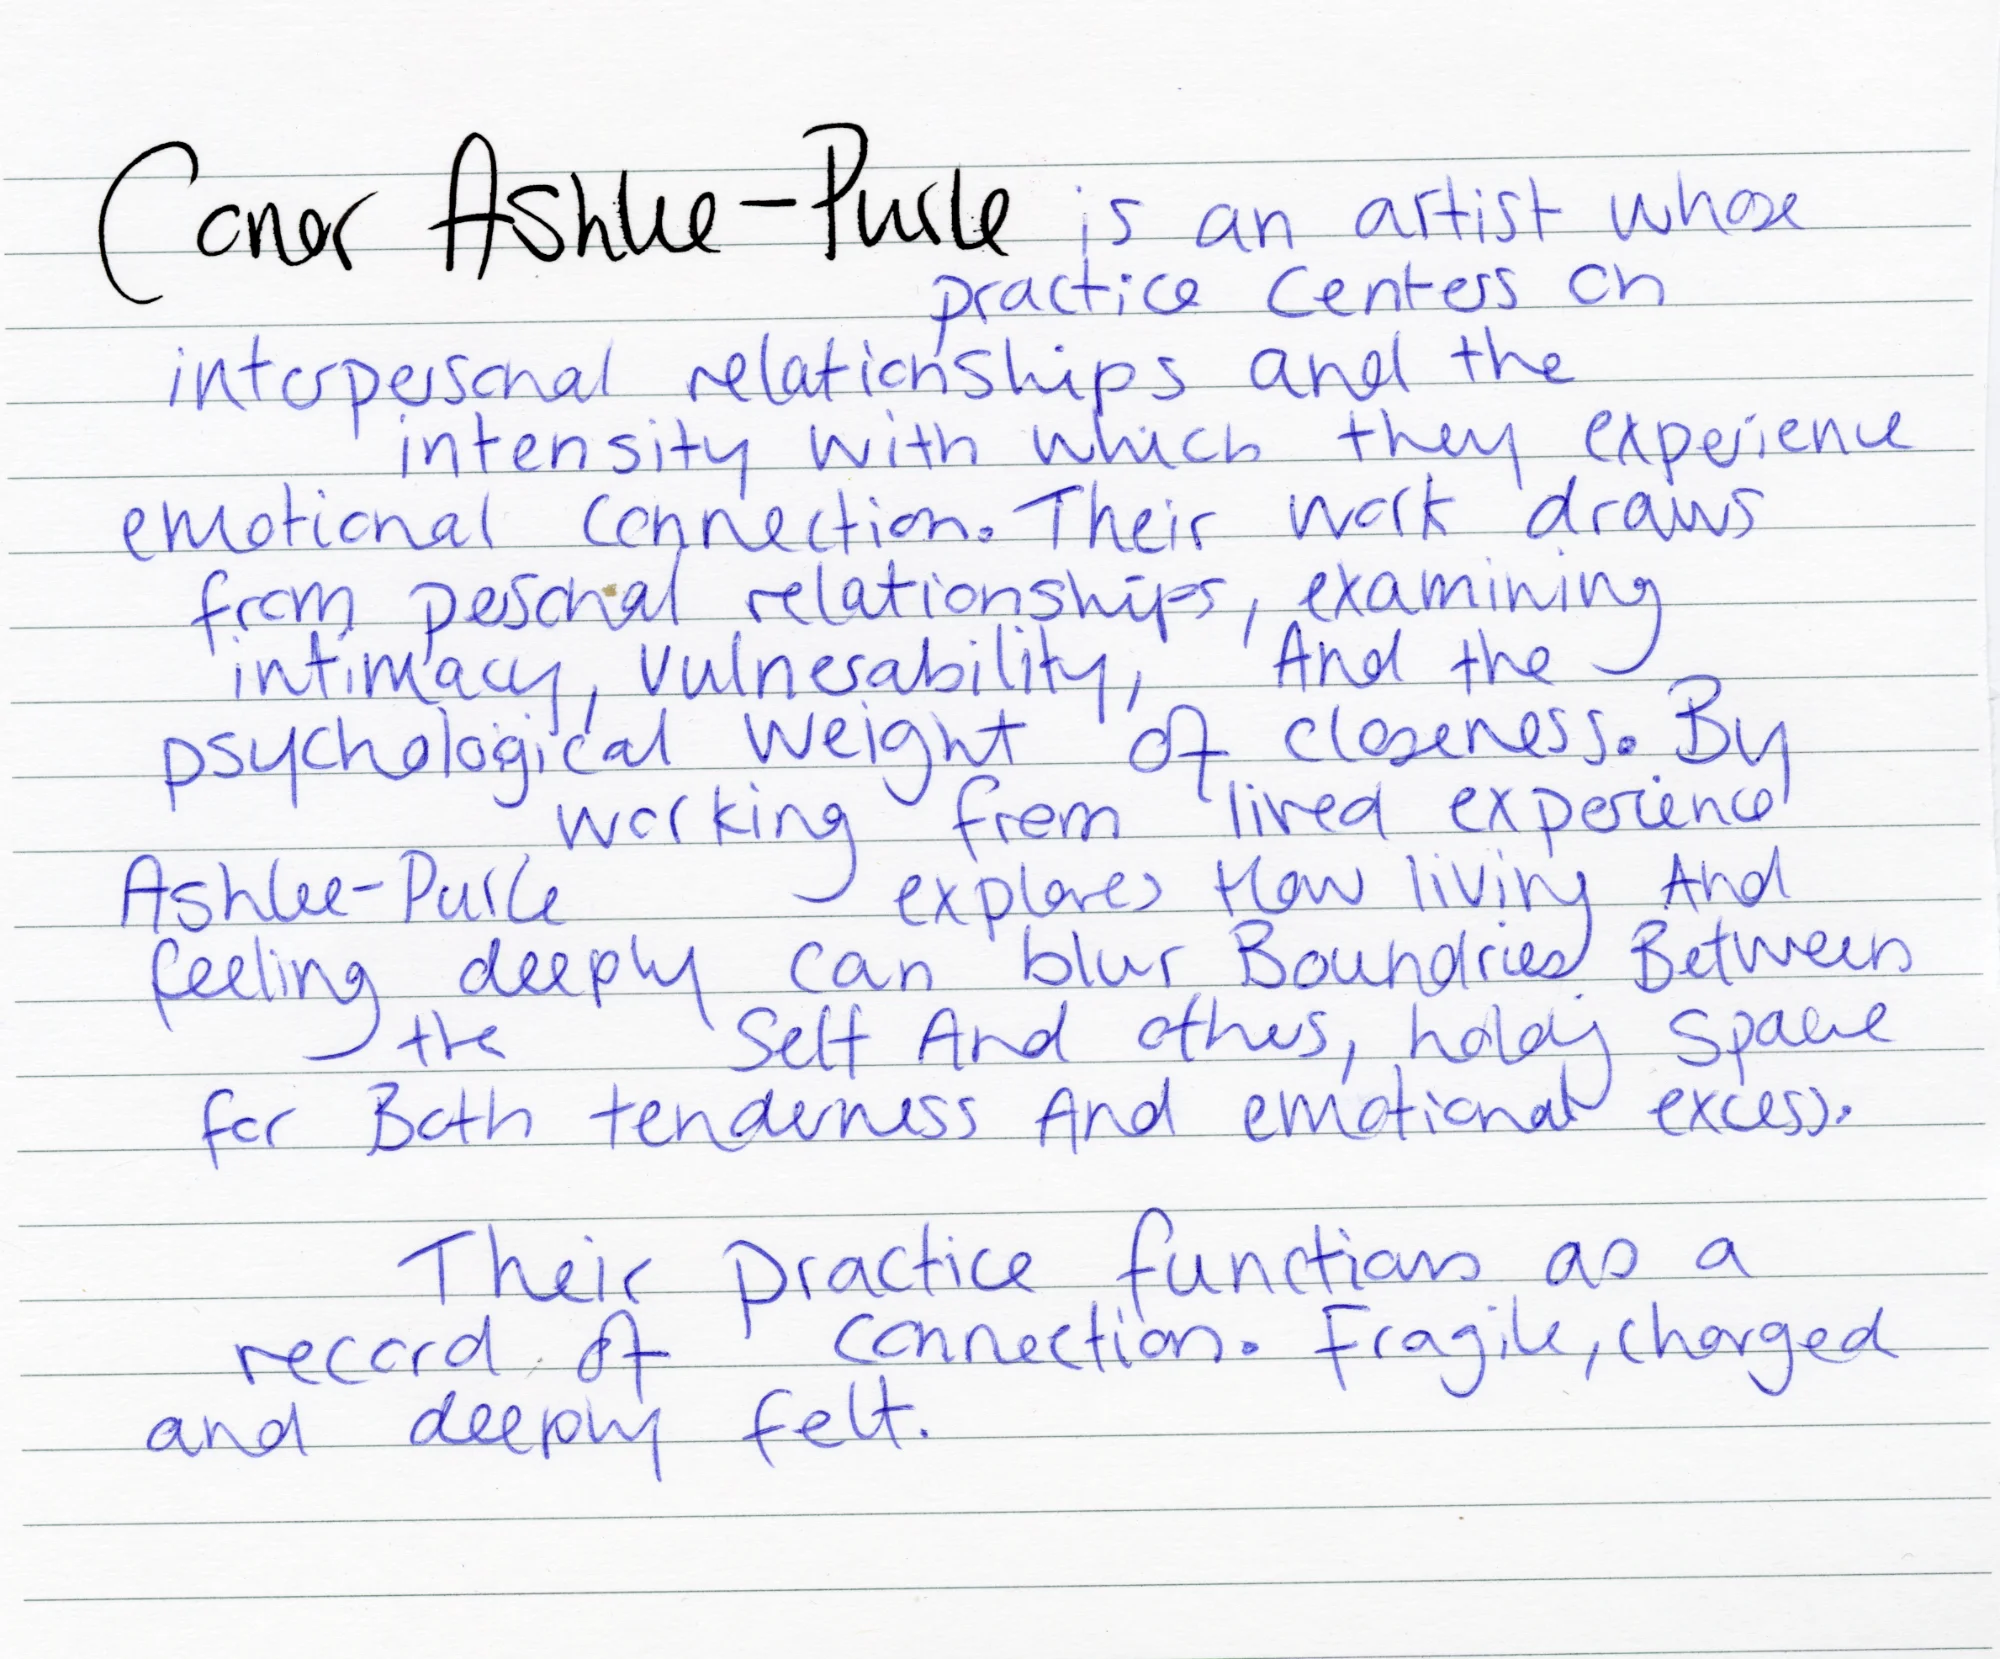 Conor Ashlee-Purle is an artist whose
practice Centers on
interpersonal relationships and the
intensity with which they experience
emotional connection. Their work draws
from personal relationships, examining
intimacy, vulnerability, And the
psychological weight of closeness. By
working from lived experience
Ashlee-Purle explores How living And
feeling deeply can blur Boundries Between
the Self And others, holding space
for Both tenderness And emotional excess.
Their practice functions as a
record of connection. Fragile, charged
and deeply felt.